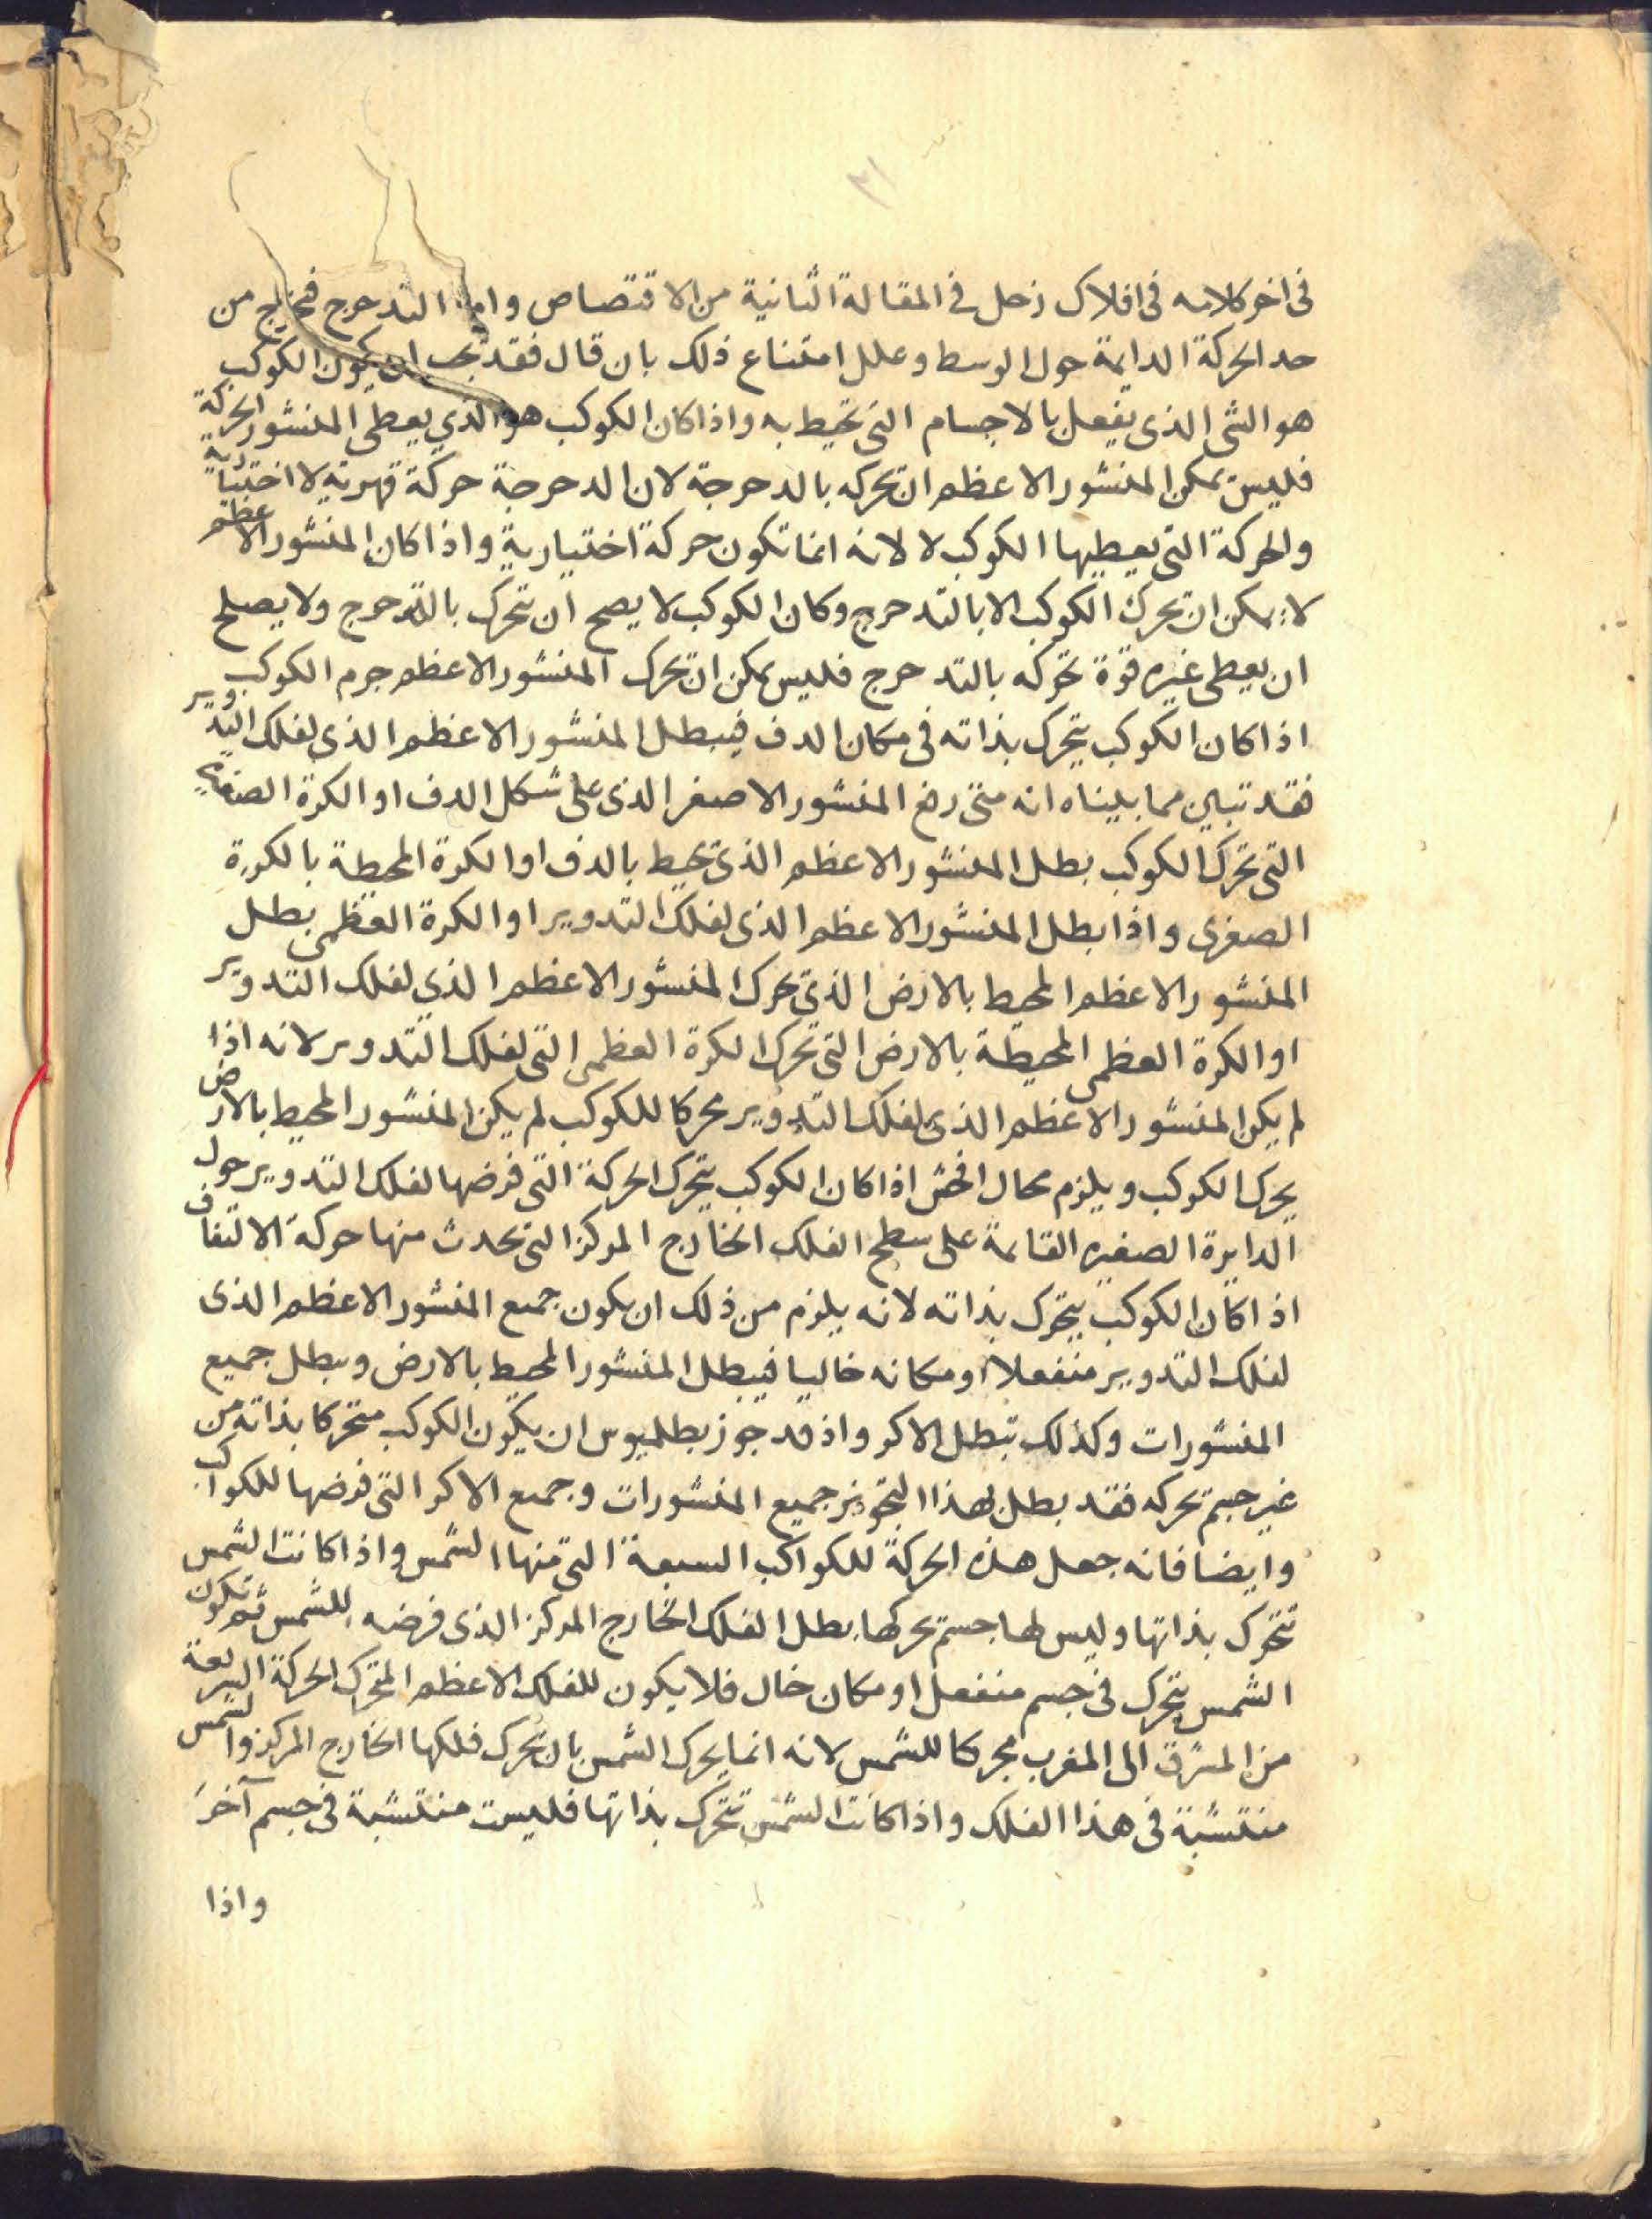 ٣١
فى اخر كلامه فى افلاك زحل فى المقالة الثانية من الاقتصاص واما التدحرج فخارج من
حد الحركة الدايمة حول الوسط وعلل امتناع ذلك بان قال فقد يجب ان يكون الكوكب
هو الشى الذى يفعل بالاجسام التى تحيط به واذا كان الكوكب هو الذي يعطى المنشور الحركة
فليس يمكن المنشور الاعظم ان يحركه بالدحرجة لان الدحرجة حركة قهرية لا اختيارية
والحركة التى يعطيها الكوكب لا لانه انما تكون حركة اختيارية واذا كان المنشور الاعظم
لا يمكن ان يحرك الكوكب الا بالتدحرج وكان الكوكب لا يصح ان يتحرك بالتدحرج ولا يصلح
ان يعطى غيره قوة تحركه بالتدحرج فليس يمكن ان يحرك المنشور الاعظم جرم الكوكب
اذا كان الكوكب يتحرك بذاته فى مكان الدف فيبطل المنشور الاعظم الذى لفلك التدوير
فقد تبين مما بيناه انه متى رفع المنشور الاصغر الذى على شكل الدف او الكرة الصغرى
التى تحرك الكوكب بطل المنشور الاعظم الذى يحيط بالدف او الكرة المحيطة بالكرة
الصغرى واذا بطل المنشور الاعظم الذى لفلك التدوير او الكرة العظمى بطل
المنشور الاعظم المحيط بالارض الذى يحرك المنشور الاعظم الذي لفلك التدوير
او الكرة العظمى المحيطة بالارض التى تحرك الكرة العظمى التى لفلك التدوير لانه اذا
لم يكن المنشور الاعظم الذى لفلك التدوير محركا للكوكب لم يكن المنشور المحيط بالارض
يحرك الكوكب ويلزم محال افحش اذا كان الكوكب يتحرك الحركة التى فرضها لفلك التدوير حول
الدايرة الصغيره القائمة على سطح الفلك الخارج المركز التى يحدث منها حركة الالتفاف
اذا كان الكوكب يتحرك بذاته لانه يلزم من ذلك ان يكون جميع المنشور الاعظم الذى
لفلك التدوير منفعلا او مكانه خاليا فيبطل المنشور المحيط بالارض ويبطل جميع
المنشورات وكذلك تبطل الاكر واذ قد جوز بطلميوس ان يكون الكوكب متحركا بذاته من
غير جسم يحركه فقد بطل بهذا التجويز جميع المنشورات وجميع الاكر التى فرضها للكواكب
وايضا فانه جعل هذه الحركة للكواكب السبعة التى منها الشمس واذا كانت الشمس
تتحرك بذاتها وليس لها جسم يحركها بطل الفلك الخارج المركز الذى فرضه للشمس ثم تكون
الشمس يتحرك فى جسم منفعل او مكان خال فلا يكون للفلك الاعظم المتحرك الحركة السريعة
من المشرق الى المغرب محركا للشمس لانه انما يحرك الشمس بان يحرك فلكها الخارج المركز والشمس
منتشبة فى هذا الفلك واذا كانت الشمس تتحرك بذاتها فليست منتشبة فى جسم آخر
واذا